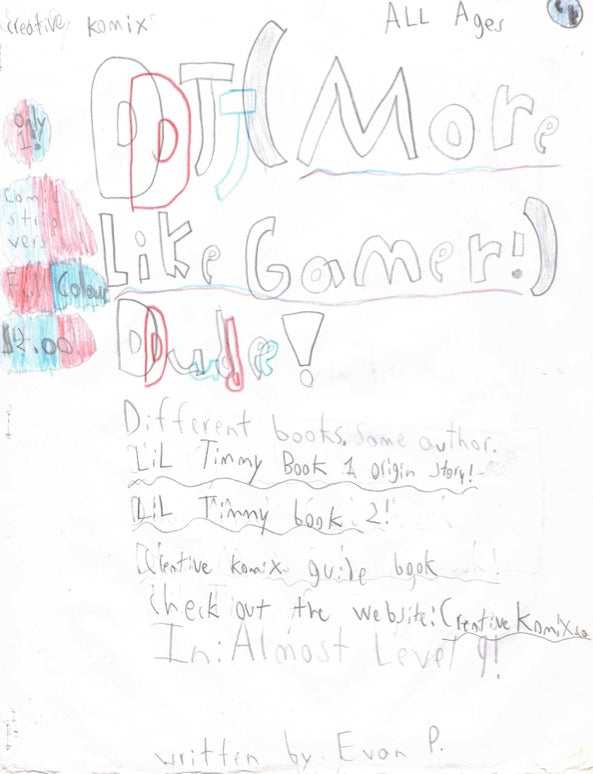 creative komix
ALL Ages
CK
DJ (More
Like Gamer!)
Dude!
only
1!
comic
strip
vers
Full Colour
$2.00
Different books, same author.
LiL Timmy Book 1 origin story!
LiL Timmy book 2!
Creative komix guide book
check out the website: Creative Komix
In: Almost Level 9!
written by Evan P.